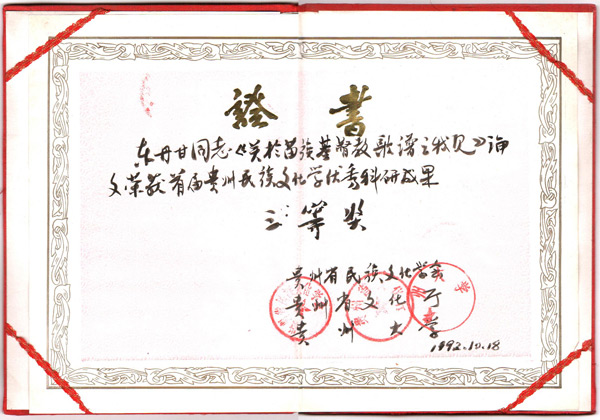 證書
东丹甘同志《关於苗族基督教歌谱之我见》论
文荣获首届贵州民族文化学优秀科研成果
三等奖
贵州省民族文化学会
贵州省文化厅
贵州大学
1992.10.18